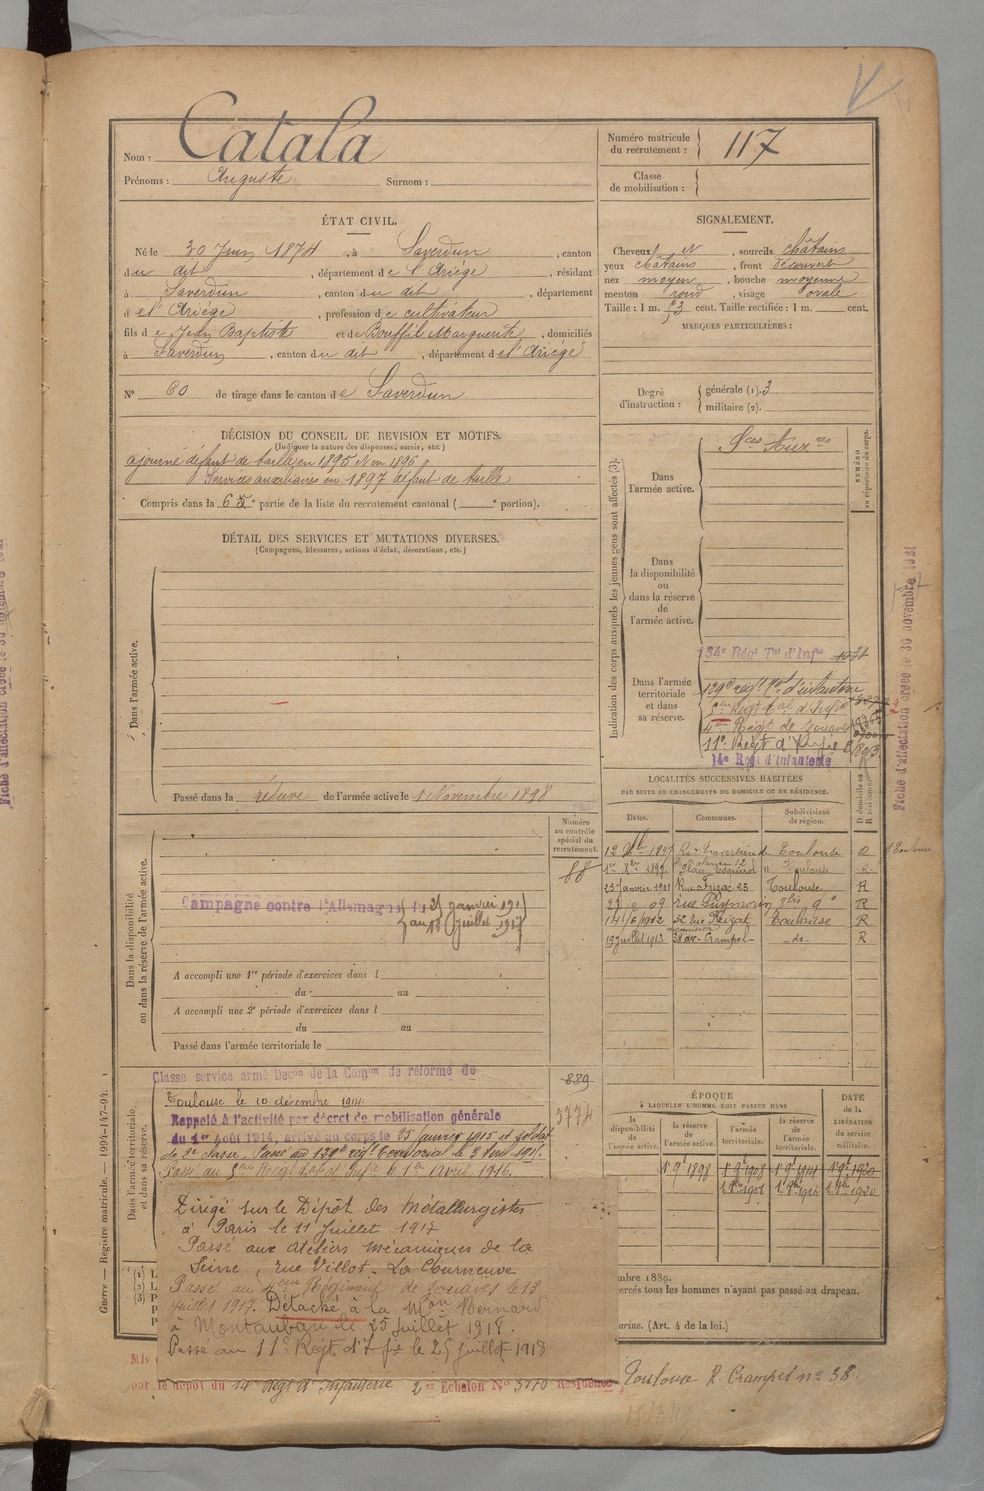 Nom : Catala
Prénoms : Auguste Surnom :
Numéro matricule du recrutement : 117
Classe de mobilisation :
ÉTAT CIVIL.
Né le 30 Juin 1874, à Saverdun, canton
du dit, département de l'Ariége, résidant
à Saverdun, canton du dit, département
de l'Ariége, profession de cultivateur
fils de Jean Baptiste et de Bouffil Marguerite, domiciliés
à Saverdun, canton du dit, département de l'Ariége
N° 60 de tirage dans le canton de Saverdun
SIGNALEMENT.
Cheveux et, sourcils châtains
yeux châtains, front découvert
nez moyen, bouche moyenne
menton rond, visage ovale
Taille : 1 m. 53 cent. Taille rectifiée : 1 m. cent.
MARQUES PARTICULIÈRES :
Degré d'instruction : générale (1). 3
militaire (2).
DÉCISION DU CONSEIL DE REVISION ET MOTIFS.
(Indiquer la nature des dispenses, sursis, etc.)
ajourné défaut de taille en 1895 et en 1896
Services auxiliaires en 1897 défaut de taille
Compris dans la 6e partie de la liste du recrutement cantonal ( e portion).
DÉTAIL DES SERVICES ET MUTATIONS DIVERSES.
(Campagnes, blessures, actions d'éclat, décorations, etc.)
Dans l'armée active.
Passé dans la réserve de l'armée active le 1 Novembre 1898
Indication des corps auxquels les jeunes gens sont affectés (3).
NUMÉRO au répertoire du corps.
Dans l'armée active.
Sces Auxres
Dans la disponibilité ou dans la réserve de l'armée active.
Dans l'armée territoriale et dans sa réserve.
134e Régt Tal d'Infie
129e régt Tal d'infanterie
5me Régt
4me Régt de Zouaves
11e Régt d'Infie
14e Régt d'Infanterie
Fiche d'affectation créée le 30 novembre
LOCALITÉS SUCCESSIVES HABITÉES
PAR SUITE DE CHANGEMENTS DE DOMICILE OU DE RÉSIDENCE.
Dates. Communes. Subdivisions de région. D domicile ou R résidence.
Toulouse R
Toulouse R
23 Janvier 1901 Rue Frizac 23 Toulouse R
R
1912 52 rue Reizat Toulouse R
19 juillet 1913 38 av. Crampel do R
Numéro au contrôle spécial du recrutement.
88
Dans la disponibilité ou dans la réserve de l'armée active.
Campagne contre l'Allemagne du 25 janvier 191
au Juillet 1917
A accompli une 1re période d'exercices dans l
du au
A accompli une 2e période d'exercices dans l
du au
Passé dans l'armée territoriale le
Dans l'armée territoriale et dans sa réserve.
889
3774
Classé service armé Decon de la Comon de réforme de
Toulouse le 10 décembre 1914
Rappelé à l'activité par décret de mobilisation générale
du 1er Août 1914, arrivé au corps le 25 janvier 1915 et soldat
de 2e classe. Passé au 129e régt territorial le 3 Avril 1915.
Passé au 5me le 1er Avril 1916.
Dirigé sur le Dépôt des Métallurgistes
à Paris le 11 Juillet 1917
Passé aux ateliers mécaniques de la
Seine, rue Villot. La Courneuve
Passé au 4eme Régiment de Zouaves le 13
juillet 1917. Détaché à la Mon Bernard
à Montauban le 25 juillet 1918.
Passé au 11e Régt d'Ife le 25 juillet 1918
par le dépôt du 14e Régt d'Infanterie 2me Echelon N° 3170 Résidence
Toulouse R. Crampel n° 38.
ÉPOQUE
À LAQUELLE L'HOMME DOIT PASSER DANS
la disponibilité de l'armée active. la réserve de l'armée active. l'armée territoriale. la réserve de l'armée territoriale.
DATE de la LIBÉRATION du service militaire.
1er 9bre 1898 1er 9bre 1908 1er 9bre 1914 1er 9bre 1920
mbre 1889.
ercés tous les hommes n'ayant pas passé au drapeau.
arine. (Art. 4 de la loi.)
Guerre — Registre matricule. — 1994-147-94.